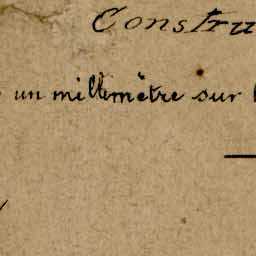 Constru
un millimètre sur